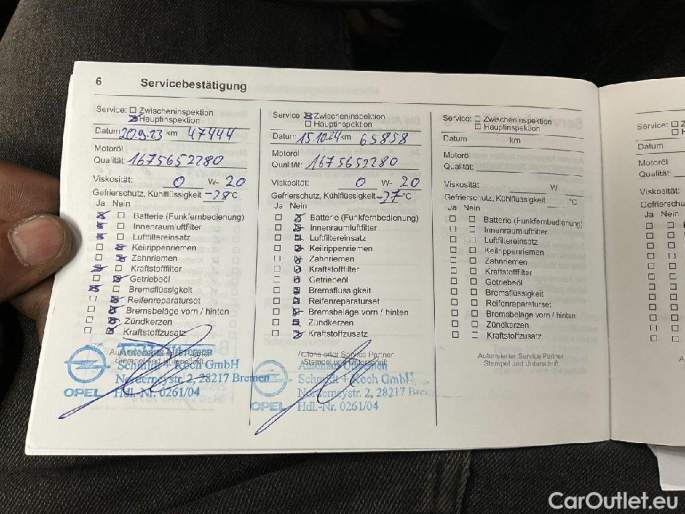 6 Servicebestätigung
Service: Zwischeninspektion
Hauptinspektion
Datum 20.9.23 km 47444
Motoröl
Qualität: 1675652280
Viskosität: 0 W- 20
Gefrierschutz, Kühlflüssigkeit -28°C
Ja Nein
Batterie (Funkfernbedienung)
Innenraumluftfilter
Luftfiltereinsatz
Keilrippenriemen
Zahnriemen
Kraftstofffilter
Getriebeöl
Bremsflüssigkeit
Reifenreparaturset
Bremsbeläge vorn / hinten
Zündkerzen
Kraftstoffzusatz
Schmidt + Koch GmbH
Norderneystr. 2, 28217 Bremen
OPEL Hdl.-Nr. 0261/04
Service Zwischeninspektion
Hauptinspektion
Datum 15.10.24 km 65858
Motoröl
Qualität: 1675652280
Viskosität: 0 W- 20
Gefrierschutz, Kühlflüssigkeit -27°C
Ja Nein
Batterie (Funkfernbedienung)
Innenraumluftfilter
Luftfiltereinsatz
Keilrippenriemen
Zahnriemen
Kraftstofffilter
Getriebeöl
Bremsflüssigkeit
Reifenreparaturset
Bremsbeläge vorn / hinten
Zündkerzen
Kraftstoffzusatz
Schmidt + Koch GmbH
Norderneystr. 2, 28217 Bremen
OPEL Hdl.-Nr. 0261/04
Service: Zwischeninspektion
Hauptinspektion
Datum km
Motoröl
Qualität:
Viskosität: W
Gefrierschutz, Kühlflüssigkeit °C
Ja Nein
Batterie (Funkfernbedienung)
Innenraumluftfilter
Luftfiltereinsatz
Keilrippenriemen
Zahnriemen
Kraftstofffilter
Getriebeöl
Bremsflüssigkeit
Reifenreparaturset
Bremsbeläge vorn / hinten
Zündkerzen
Kraftstoffzusatz
Autorisierter Service Partner
Stempel und Unterschrift
Service:
Datum
Motoröl
Qualität:
Viskosität:
Ja Nein
CarOutlet.eu